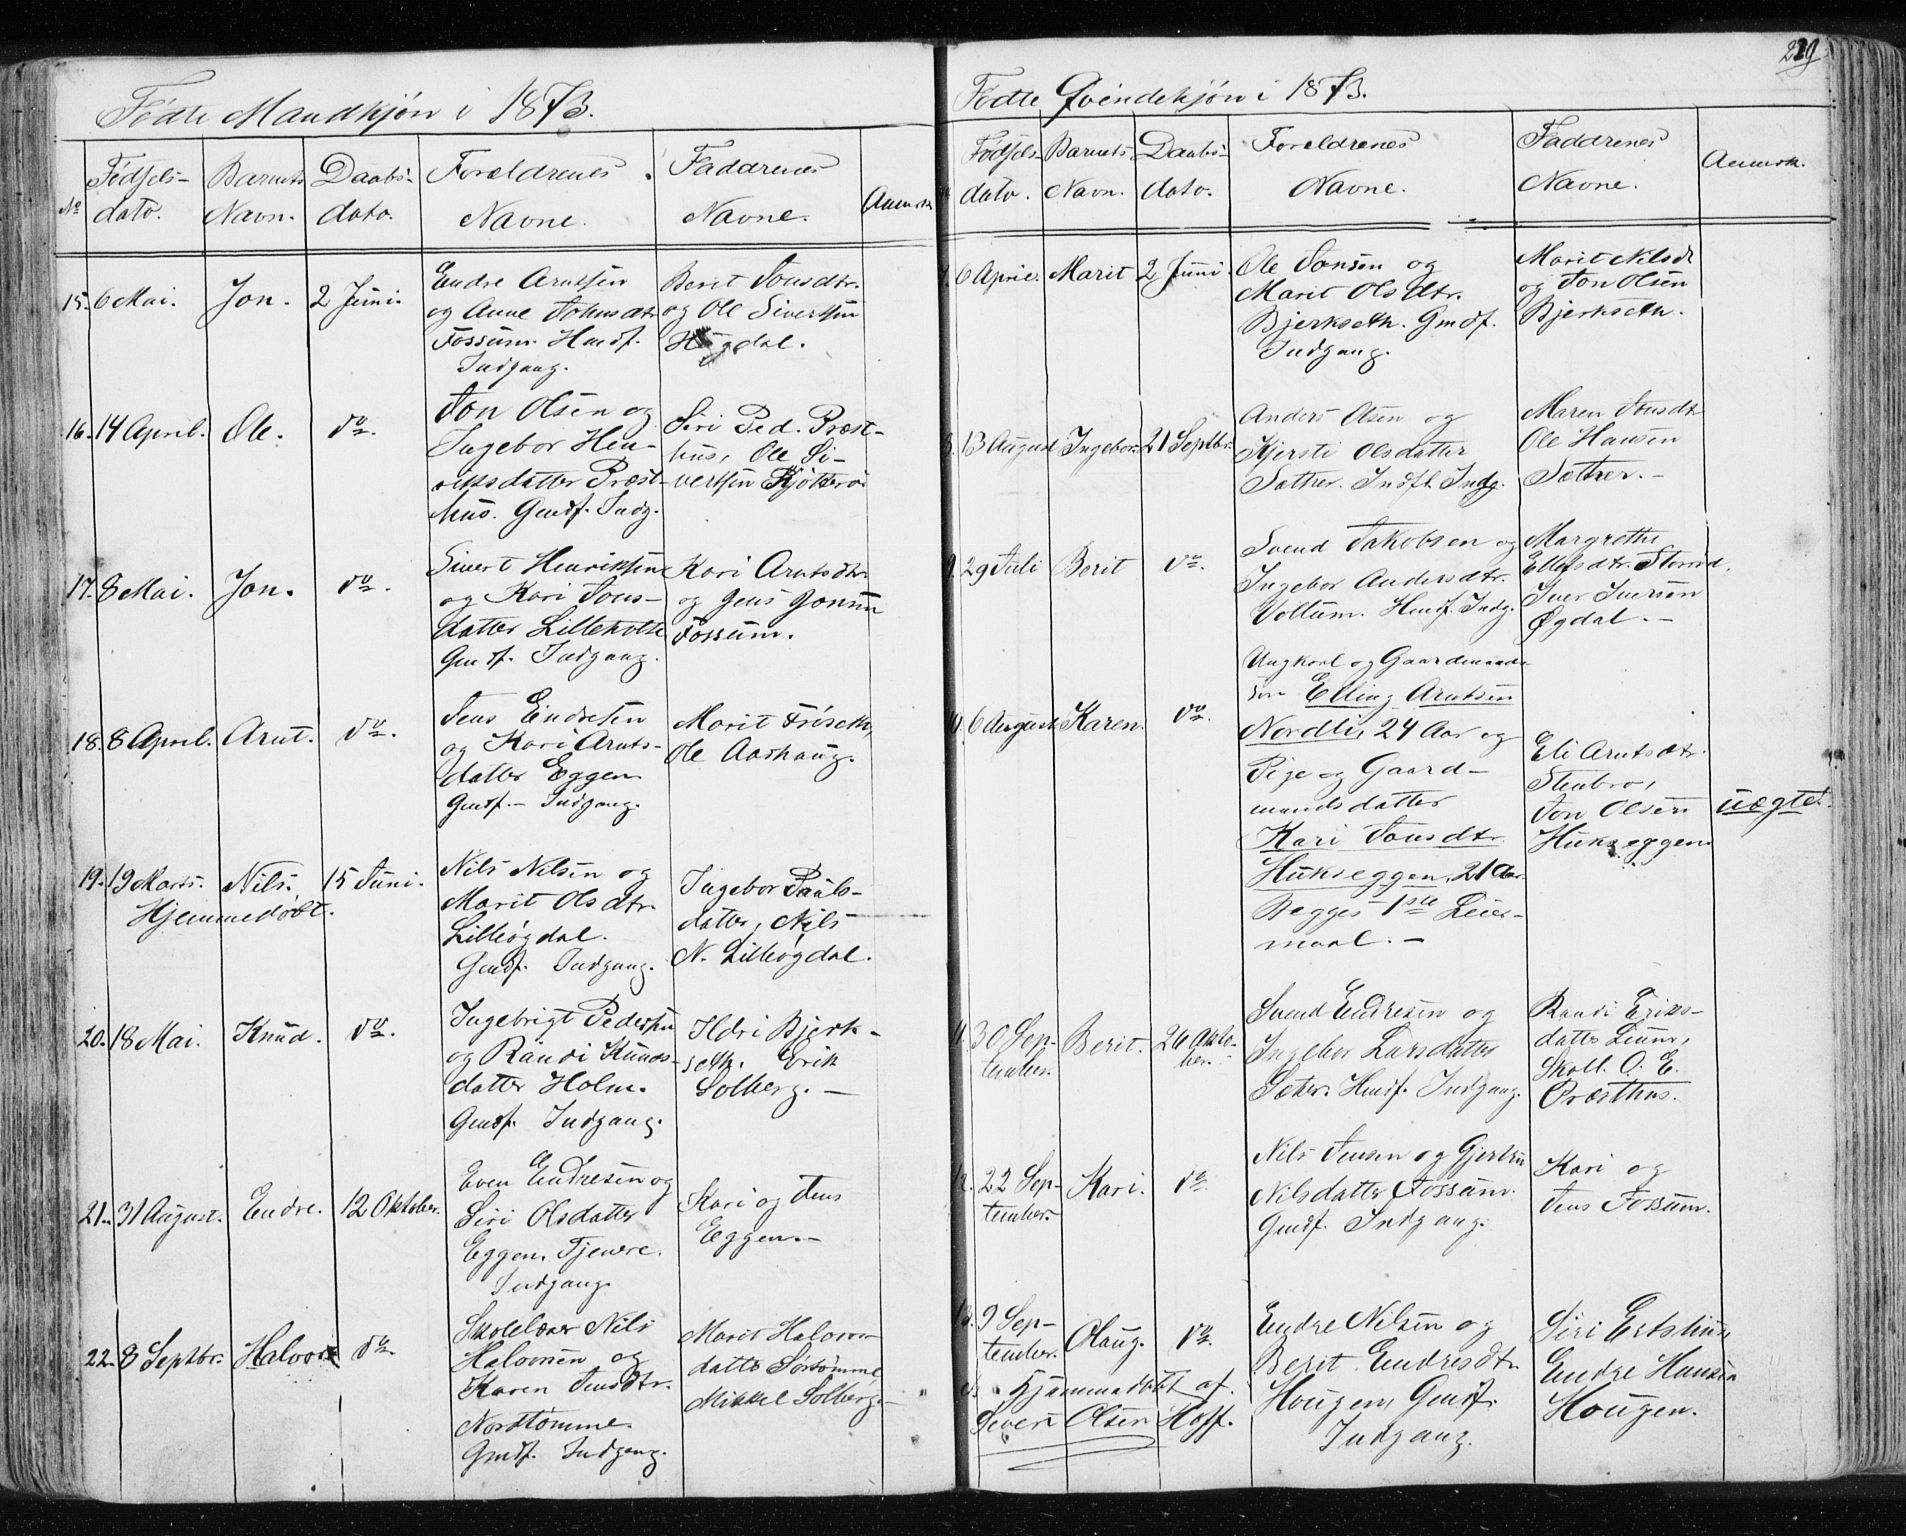 Födte Mandkjön i 1873.
No
Födsels-
dato.
Barnets
Navn.
Daabs-
dato.
Forældrenes
Navne.
Faddrenes
Navne.
Anmrk
15. 6 Mai. Jon. 2 Juni.
Endre Arntsen
og Anne Johnsdtr
Fossum. Hmdf.
Indgang.
Berit Jonsdtr.
og Ole Sivertsen
Hugdal.
16. 14 April. Ole. do.
Jon Olsen og
Ingebor Hen-
riksdatter Præst-
hus. Gmdf. Indg.
Siri Ped. Præst-
hus, Ole Si-
vertsen
17. 8 Mai. Jon. do.
Sivert Henriksen
og Kari Jons-
datter Lilleholte
Gmdf. Indgang.
Kari Arntsdtr.
og Jens Jonsen
Fossum.
18. 8 April. Arnt. do.
Jens Endresen
og Kari Arnts-
datter Eggen.
Gmdf. - Indgang.
Marit Friseth,
Ole Aashaug.
19. 19 Marts. Nils. 15 Juni.
Hjemmedöbt.
Nils Nilsen og
Marit Olsdtr.
Lilleögdal.
Gmdf. Indgang.
Ingebor Pauls-
datter, Nils
N. Lilleögdal.
20. 18 Mai. Knud. do.
Ingebrigt Pedersen
og Randi Knuds-
datter Holm.
Gmdf. Indgang.
Ildri Bjerk-
seth. Erik
Solberg. -
21. 31 August. Endre. 12 Oktober.
Even Endresen og
Siri Olsdatter
Eggen, Tjenere.
Indgang.
Kari og Jens
Eggen. -
22. 8 Septbr. Halvor do.
Skolelærer Nils
Halvorsen og
Karen Jensdtr.
Nordtömme.
Gmdf. Indgang.
Marit Halvors-
datter Sörtömme,
Mikkel Solberg. -
229
Födte Qvindekjön i 1873.
Födsels-
dato.
Barnets
Navn.
Daabs-
dato.
Forældrenes
Navne.
Faddrenes
Navne.
Anmrk.
7. 6 April. Marit 2 Juni.
Ole Jonsen og
Marit Olsdtr.
Bjerkseth. Gmdf.
Indgang.
Marit Nilsdr
og Jon Olsen
Bjerkseth.
8. 13 August Ingebor. 21 Septbr.
Anders Olsen og
Kjersti Olsdatter
Sættrer. Indfl. Indg.
Maren Jonsdtr
Ole Hansen
Sættrer. -
9. 29 Juli Berit do.
Svend Jakobsen og
Ingebor Andersdtr.
Voltum. Hmdf. Indg.
Margrethe
Ellefsdtr. Storrød.
Iver Iversen
Øgdal. -
10. 6 August Karen. do.
Ungkarl og Gaardmands-
søn Elling Arntsen
Nordli, 24 Aar og
Pige og Gaard-
mandsdatter
Kari Jonsdtr
Hukseggen, 21 Aar.
Begges 1ste Leier-
maal. -
Eli Arntsdtr.
Stenbro,
Jon Olsen
Hukseggen
uægte.
11. 30 Sep-
tember. Berit. 26 Okto-
ber.
Svend Endresen og
Ingebor Larsdatter
Sæter. Hmdf. Indgang.
Randi Eriks-
datter Lium,
Skoll. O. E.
Præsthus.
12. 22 Sep-
tember. Kari. do.
Nils Jensen og Gjertru
Nilsdatter Fossum.
Gmdf. Indgang.
Kari og
Jens Fossum.
13. 9 Sep-
tember. Olaug. do.
Hjemmedöbt af
Sivert Olsen Hoff.
Endre Nilsen og
Berit Endresdtr.
Hougen, Gmdf.
Indgang.
Siri Estensen,
Endre Hansen
Hougen.